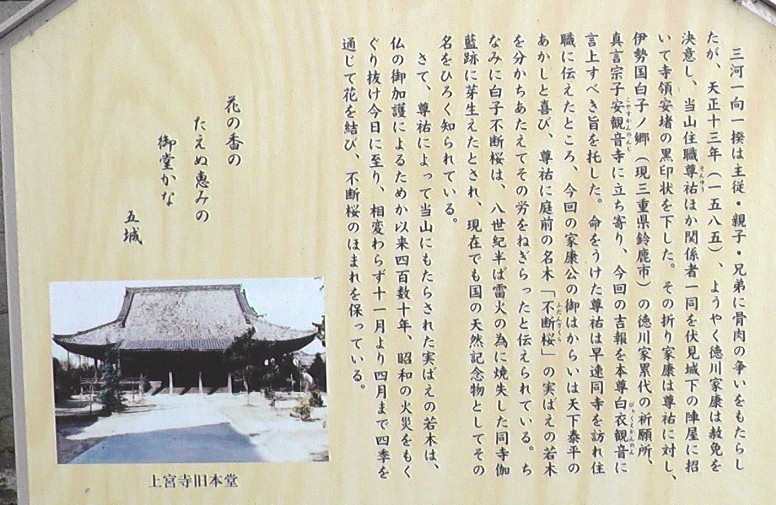 三河一向一揆は主従・親子・兄弟に骨肉の争いをもたらし
たが、天正十三年（一五八五）、ようやく徳川家康は赦免を
決意し、当山住職尊祐ほか関係者一同を伏見城下の陣屋に招
いて寺領安堵の黒印状を下した。その折り家康は尊祐に対し、
伊勢国白子ノ郷（現三重県鈴鹿市）の徳川家累代の祈願所、
真言宗子安観音寺に立ち寄り、今回の吉報を本尊白衣観音に
言上すべき旨を托した。命をうけた尊祐は早速同寺を訪れ住
職に伝えたところ、今回の家康公の御はからいは天下泰平の
あかしと喜び、尊祐に庭前の名木「不断桜」の実ばえの若木
を分かちあたえてその労をねぎらったと伝えられている。ち
なみに白子不断桜は、八世紀半ば雷火の為に焼失した同寺伽
藍跡に芽生えたとされ、現在でも国の天然記念物としてその
名をひろく知られている。
さて、尊祐によって当山にもたらされた実ばえの若木は、
仏の御加護によるためか以来四百数十年、昭和の火災をもく
ぐり抜け今日に至り、相変わらず十一月より四月まで四季を
通じて花を結び、不断桜のほまれを保っている。
花の香の
たえぬ恵みの
御堂かな
五城
上宮寺旧本堂